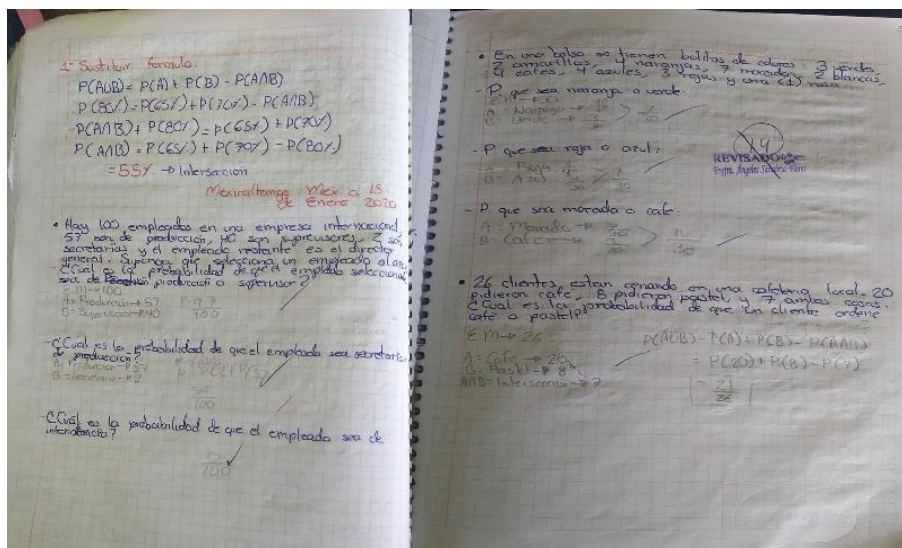 1- Sustituir formula:
P(AUB) = P(A) + P(B) - P(A∩B)
P(80%) = P(65%) + P(70%) - P(A∩B)
P(A∩B) + P(80%) = P(65%) + P(70%)
P(A∩B) = P(65%) + P(70%) - P(80%)
= 55% → Interseccion
Mexicaltzingo Mex a 15
de Enero 2020
• Hay 100 empleados en una empresa internacional
57 son de producción, 40 son supervisores, 2 son
secretarias y el empleado restante es el director
general. Suponga que selecciona un empleado al azar
- ¿Cuál es la probabilidad de que el empleado seleccionado
sea de producción o supervisor?
E.M → 100
A = Producción → 57 P: 97
B = Supervisor → 40 100
- ¿Cual es la probabilidad de que el empleado sea secretaria
de producción?
A = Producción → 57
B = Secretaria → 2
100
- ¿Cuál es la probabilidad de que el empleado sea de
intendencia?
0
100
• En una bolsa se tienen bolitas de colores: 3 verdes
2 amarillas, 4 naranjas, 7 moradas, 2 blancas,
4 cafes, 4 azules, 3 rojas y una (1) rosa.
- P. que sea naranja o verde.
A = Naranja →
B = Verde → 30
- P que sea roja o azul:
A = Roja 7
B = Azul 30
REVISADO
Profra. Angeles
- P. que sea morada o cafe:
A = Morada → 7 11
B = Cafe → 30 30
• 26 clientes, estan cenando en una cafeteria local. 20
pidieron cafe, 8 pidieron pastel, y 7 ambas cosas.
¿Cual es la probabilidad de que un cliente ordene
café o pastel?
E.M → 26 P(AUB) = P(A) + P(B) - P(A∩B)
A = Cafe → 20 = P(20) + P(8) - P(7)
B = Pastel → 8 = 21
A∩B = Interseccion → 7 26